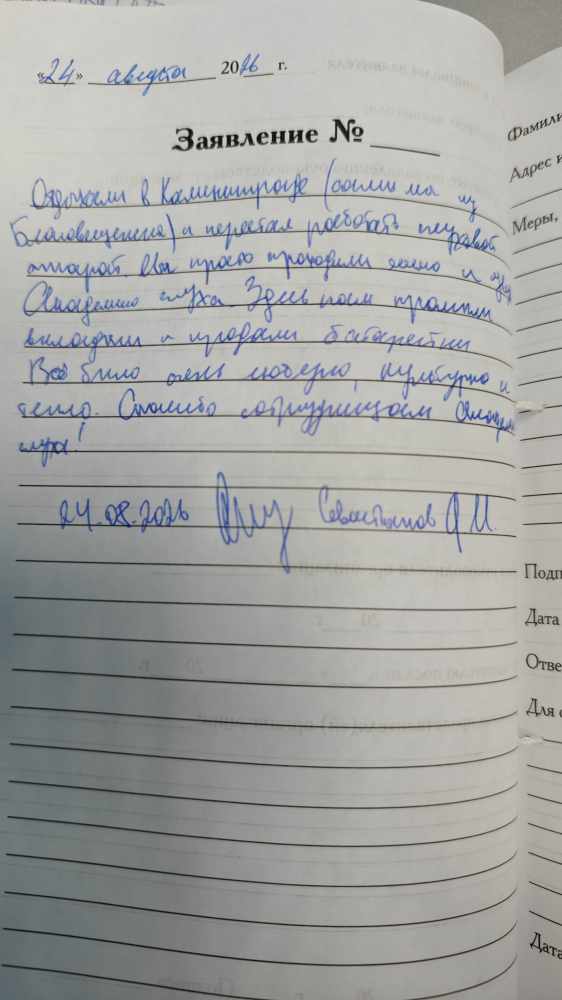 «24» августа 2026 г.
Заявление №
Отдыхали в Калининграде (сами мы из
Благовещенска) и перестал работать слуховой
аппарат. Мы просто проходили мимо и
Академию слуха. Здесь нам промыли
вкладыши и продали батарейки
Всё было очень любезно, культурно и
тепло. Спасибо сотрудницам Академии
слуха!
24.08.2026 Севастьянов А И.
Фамили
Адрес и
Меры,
Подп
Дата
Отве
Для
Дата